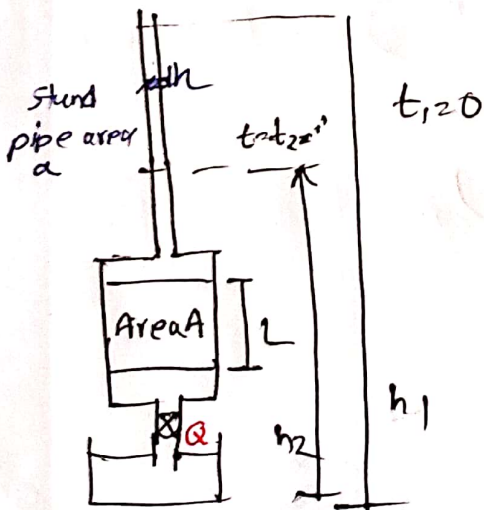 dh
Stand
pipe area
a
t=t2
t1=0
Area A
L
Q
h2
h1